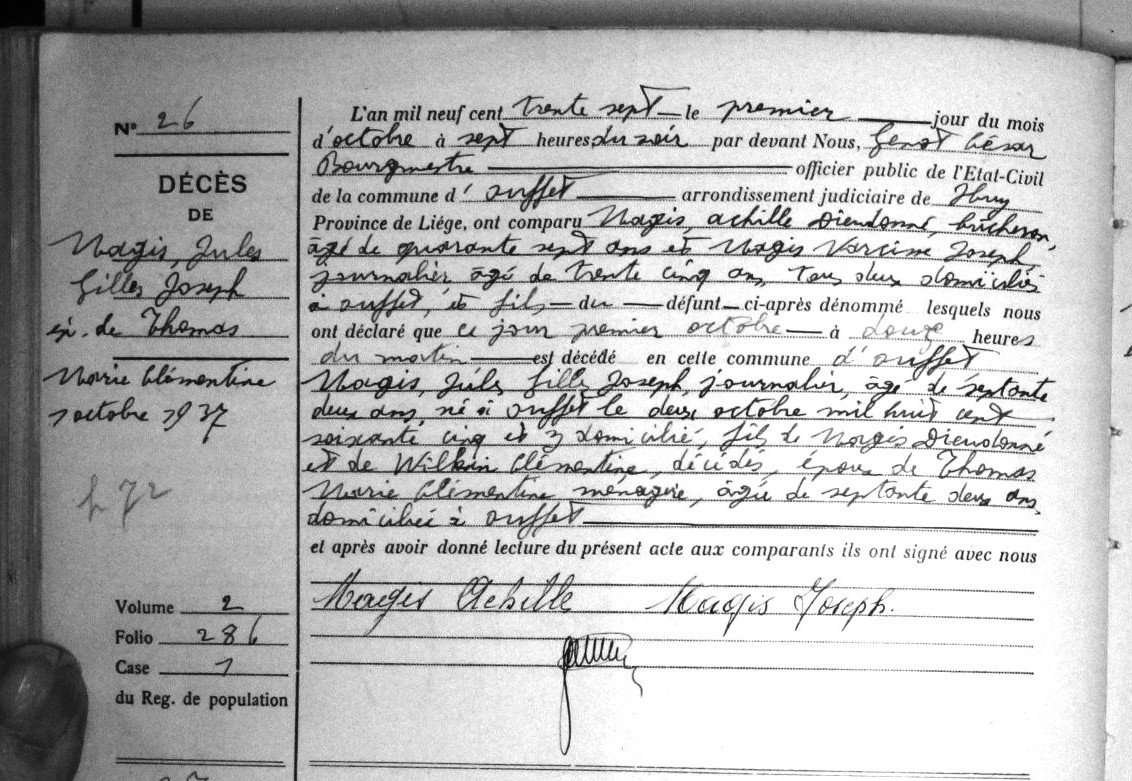 N° 26
DÉCÈS
DE
Magis, Jules
Gilles Joseph
ép. de Thomas
Marie Clémentine
1 octobre 1937
172
Volume 2
Folio 286
Case 1
du Reg. de population
L'an mil neuf cent trente sept le premier jour du mois
d'octobre à sept heures du soir par devant Nous, Genot César
Bourgmestre officier public de l'Etat-Civil
de la commune d'Ouffet arrondissement judiciaire de Huy
Province de Liége, ont comparu Magis, Achille Dieudonné, bûcheron,
âgé de quarante sept ans et Magis Narcisse Joseph
journalier, âgé de trente cinq ans, tous deux domiciliés
à Ouffet, et fils du défunt ci-après dénommé lesquels nous
ont déclaré que ce jour premier octobre à douze heures
du matin est décédé en cette commune d'Ouffet
Magis, Jules, Gilles Joseph, journalier, âgé de septante
deux ans, né à Ouffet le deux octobre mil huit cent
soixante cinq et y domicilié, fils de Magis Dieudonné
et de Wilkin Clémentine, décédés, époux de Thomas
Marie Clémentine ménagère, âgée de septante deux ans,
domiciliée à Ouffet
et après avoir donné lecture du présent acte aux comparants ils ont signé avec nous
Magis Achille Magis Joseph.